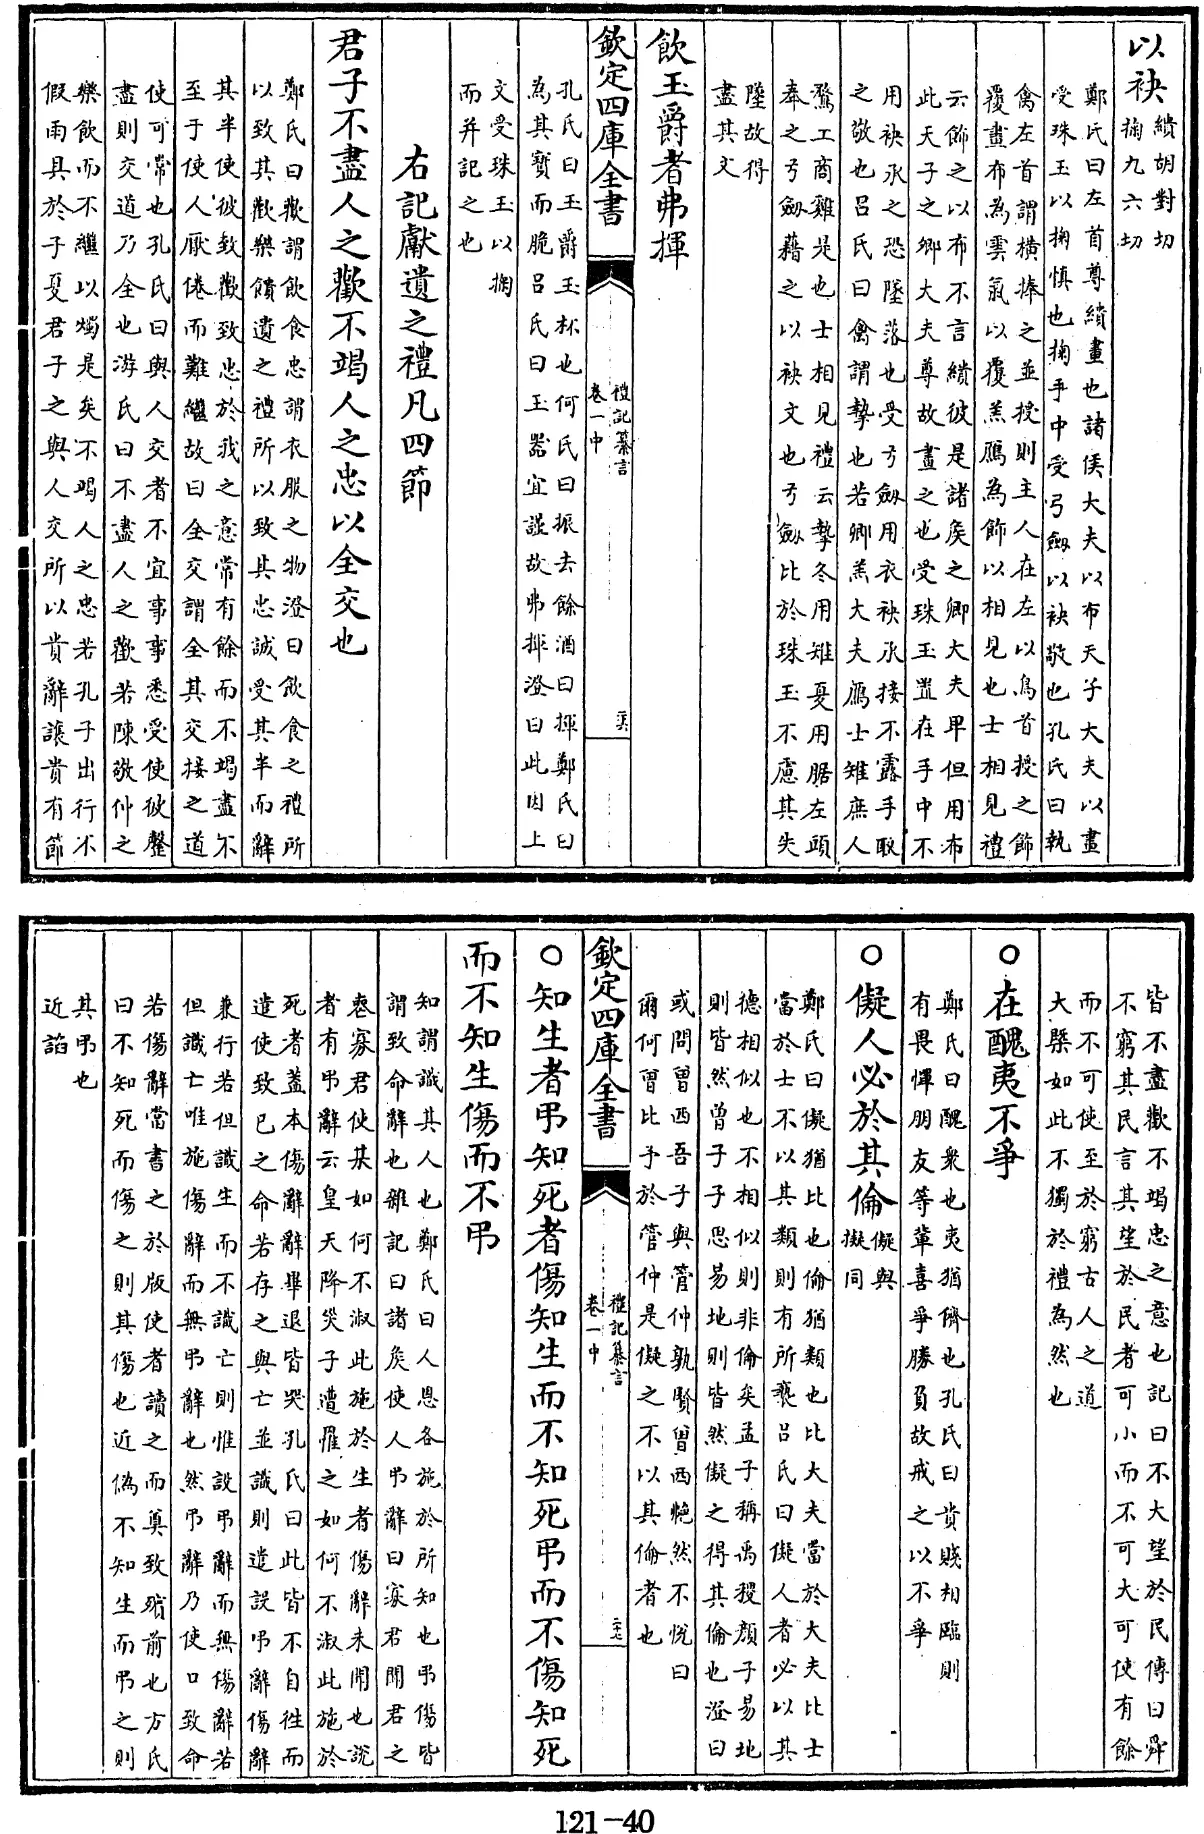 以袂
繢胡對切
掬九六切
鄭氏曰左首尊繢畫也諸侯大夫以布天子大夫以畫
受珠玉以掬慎也掬手中受弓劒以袂敬也孔氏曰執
禽左首謂橫捧之並授則主人在左以鳥首授之飾
覆畫布為雲氣以覆羔鴈為飾以相見也士相見禮
云飾之以布不言繢彼是諸侯之卿大夫卑但用布
此天子之卿大夫尊故畫之也受珠玉置在手中不
用袂承之恐墜落也受弓劒用衣袂承接不露手取
之敬也吕氏曰禽謂摯也若卿羔大夫鴈士雉庶人
鶩工商雞是也士相見禮云摯冬用雉夏用腒左頭
奉之弓劒藉之以袂文也弓劒比於珠玉不慮其失
墜故得
盡其文
飲玉爵者弗揮
欽定四庫全書
禮記纂言
卷一中
二六
孔氏曰玉爵玉杯也何氏曰振去餘酒曰揮鄭氏曰
為其寳而脆吕氏曰玉器宜謹故弗揮澄曰此因上
文受珠玉以掬
而并記之也
右記獻遺之禮凡四節
君子不盡人之歡不竭人之忠以全交也
鄭氏曰歡謂飲食忠謂衣服之物澄曰飲食之禮所
以致其歡樂饋遺之禮所以致其忠誠受其半而辭
其半使彼致歡致忠於我之意常有餘而不竭盡不
至于使人厭倦而難繼故曰全交謂全其交接之道
使可常也孔氏曰與人交者不宜事事悉受使彼罄
盡則交道乃全也游氏曰不盡人之歡若陳敬仲之
樂飲而不繼以燭是矣不竭人之忠若孔子出行不
假雨具於子夏君子之與人交所以貴辭讓貴有節
皆不盡歡不竭忠之意也記曰不大望於民傳曰舜
不窮其民言其望於民者可小而不可大可使有餘
而不可使至於窮古人之道
大槩如此不獨於禮為然也
○在醜夷不爭
鄭氏曰醜衆也夷猶儕也孔氏曰貴賤相臨則
有畏憚朋友等輩喜爭勝負故戒之以不爭
○儗人必於其倫
儗與
擬同
鄭氏曰儗猶比也倫猶類也比大夫當於大夫比士
當於士不以其類則有所褻吕氏曰儗人者必以其
德相似也不相似則非倫矣孟子稱禹稷顔子易地
則皆然曾子子思易地則皆然儗之得其倫也澄曰
或問曾西吾子與管仲孰賢曾西艴然不悅曰
爾何曾比予於管仲是儗之不以其倫者也
欽定四庫全書
禮記纂言
卷一中
二七
○知生者弔知死者傷知生而不知死弔而不傷知死
而不知生傷而不弔
知謂識其人也鄭氏曰人恩各施於所知也弔傷皆
謂致命辭也雜記曰諸侯使人弔辭曰寡君聞君之
喪寡君使某如何不淑此施於生者傷辭未聞也說
者有弔辭云皇天降災子遭罹之如何不淑此施於
死者蓋本傷辭辭畢退皆哭孔氏曰此皆不自往而
遣使致已之命若存之與亡並識則遣設弔辭傷辭
兼行若但識生而不識亡則惟設弔辭而無傷辭若
但識亡唯施傷辭而無弔辭也然弔辭乃使口致命
若傷辭當書之於版使者讀之而奠致殯前也方氏
曰不知死而傷之則其傷也近偽不知生而弔之則
其弔也
近諂
121-40